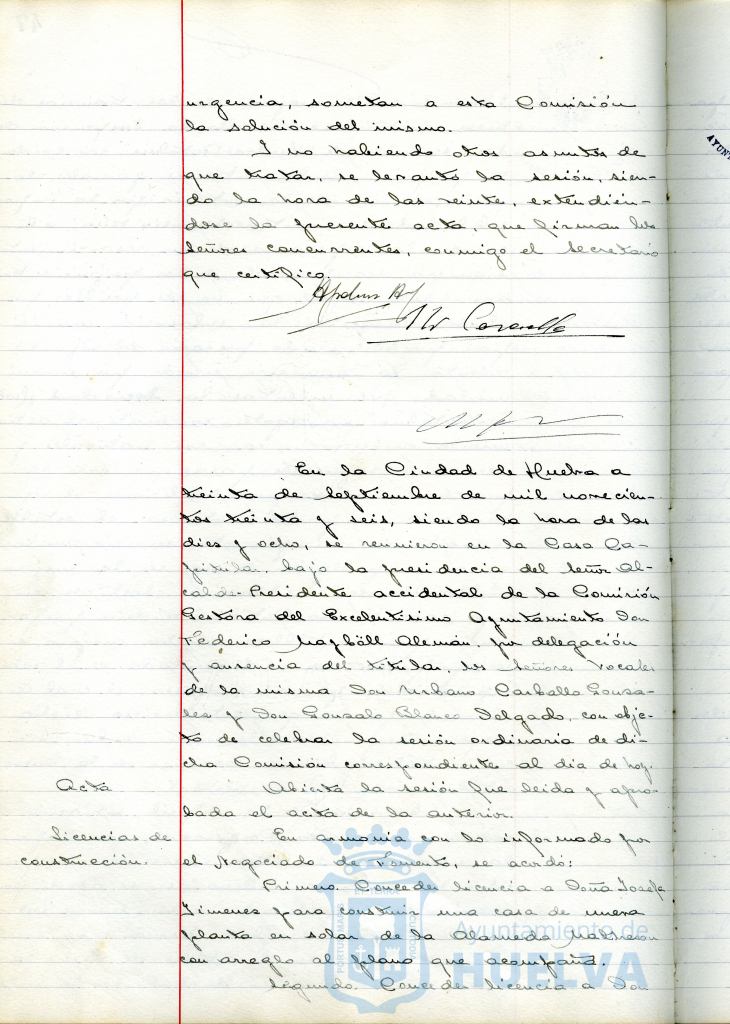 urgencia, sometan a esta Comisión
la solución del mismo.
Y no habiendo otros asuntos de
que tratar, se levantó la sesión, sien-
do la hora de las veinte, extendién-
dose la presente acta, que firman los
señores concurrentes, conmigo el Secretario
que certifico.
En la Ciudad de Huelva a
treinta de Septiembre de mil novecien-
tos treinta y seis, siendo la hora de las
dies y ocho, se reunieron en la Casa Ca-
pitular, bajo la presidencia del Señor Al-
calde-Presidente accidental de la Comisión
Gestora del Excelentísimo Ayuntamiento Don
Federico Mayböll Alemán, por delegación
y ausencia del titular, los Señores Vocales
de la misma Don Urbano Carballo Gonsa-
les y Don Gonsalo Blanco Delgado, con obje-
to de celebrar la sesión ordinaria de di-
cha Comisión correspondiente al día de hoy.
Acta
Abierta la sesión fue leida y apro-
bada el acta de la anterior.
Licencias de
construcción.
En armonía con lo informado por
el Negociado de Fomento, se acordó:
Primero. Conceder licencia a Doña Josefa
Jimenes para construir una casa de nueva
planta en solar de la Alameda
con arreglo al plano que acompaña.
Segundo. Conceder licencia a Don
Ayuntamiento de
HUELVA